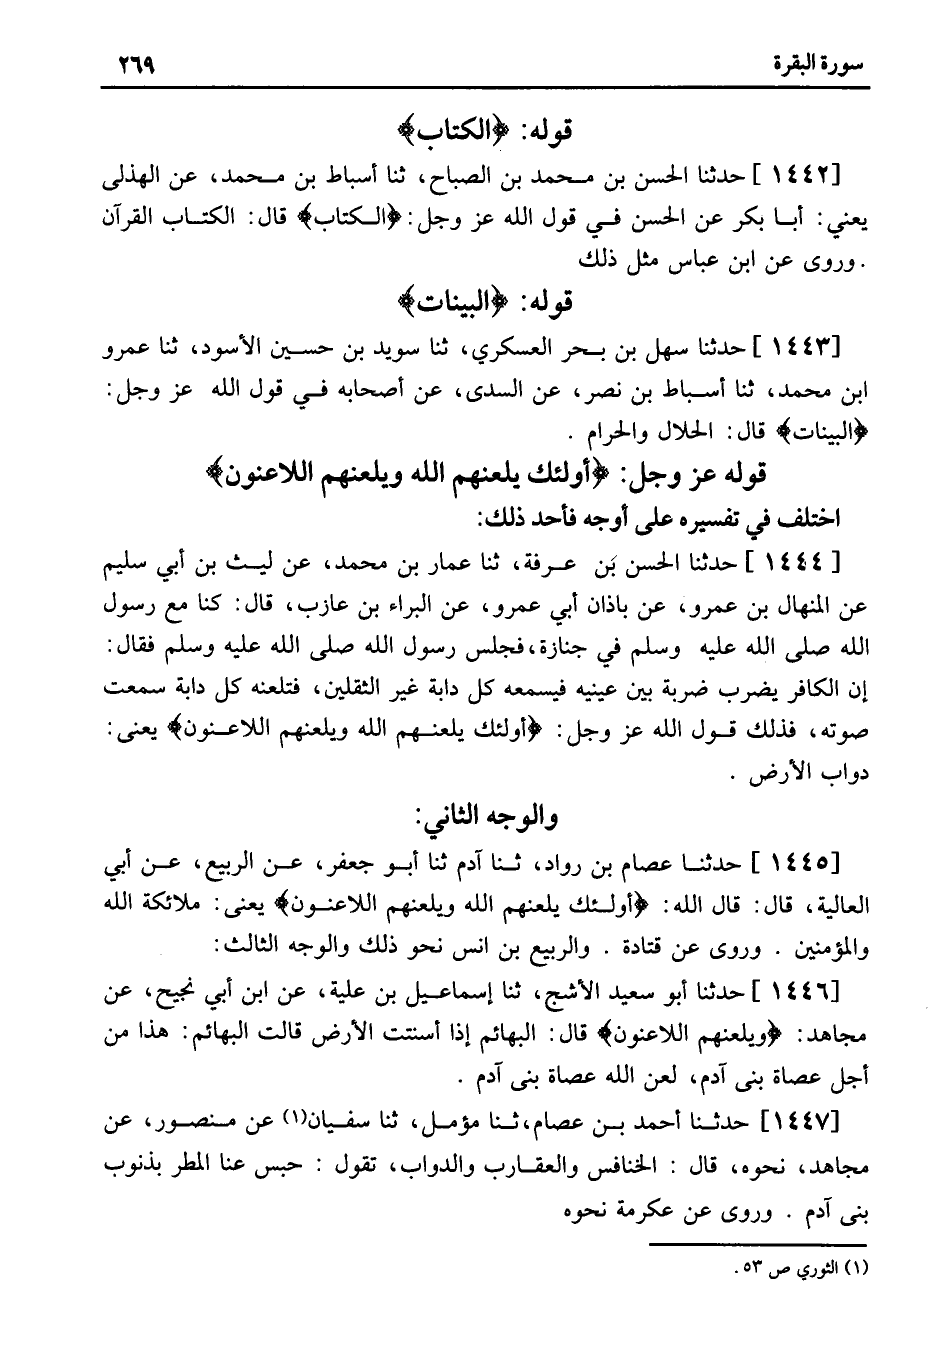 سورة البقرة ٢٦٩
قوله: ﴿الكتاب﴾
[١٤٤٢ ] حدثنا الحسن بن محمد بن الصباح، ثنا أسباط بن محمد، عن الهذلى
يعني: أبا بكر عن الحسن في قول الله عز وجل: ﴿الكتاب﴾ قال: الكتاب القرآن
. وروى عن ابن عباس مثل ذلك
قوله: ﴿البينات﴾
[١٤٤٣ ] حدثنا سهل بن بحر العسكري، ثنا سويد بن حسين الأسود، ثنا عمرو
ابن محمد، ثنا أسباط بن نصر، عن السدى، عن أصحابه في قول الله عز وجل:
﴿البينات﴾ قال: الحلال والحرام .
قوله عز وجل: ﴿أولئك يلعنهم الله ويلعنهم اللاعنون﴾
اختلف في تفسيره على أوجه فأحد ذلك:
[١٤٤٤ ] حدثنا الحسن بَن عرفة، ثنا عمار بن محمد، عن ليث بن أبي سليم
عن المنهال بن عمرو، عن باذان أبي عمرو، عن البراء بن عازب، قال: كنا مع رسول
الله صلى الله عليه وسلم في جنازة، فجلس رسول الله صلى الله عليه وسلم فقال:
إن الكافر يضرب ضربة بين عينيه فيسمعه كل دابة غير الثقلين، فتلعنه كل دابة سمعت
صوته، فذلك قول الله عز وجل: ﴿أولئك يلعنهم الله ويلعنهم اللاعنون﴾ يعنى:
دواب الأرض .
والوجه الثاني:
[١٤٤٥ ] حدثنا عصام بن رواد، ثنا آدم ثنا أبو جعفر، عن الربيع، عن أبي
العالية، قال: قال الله: ﴿أولئك يلعنهم الله ويلعنهم اللاعنون﴾ يعنى: ملائكة الله
والمؤمنين . وروى عن قتادة . والربيع بن انس نحو ذلك والوجه الثالث:
[١٤٤٦ ] حدثنا أبو سعيد الأشج، ثنا إسماعيل بن علية، عن ابن أبي نجيح، عن
مجاهد: ﴿ويلعنهم اللاعنون﴾ قال: البهائم إذا أسنتت الأرض قالت البهائم: هذا من
أجل عصاة بنى آدم، لعن الله عصاة بنى آدم .
[١٤٤٧] حدثنا أحمد بن عصام، ثنا مؤمل، ثنا سفيان(١) عن منصور، عن
مجاهد، نحوه، قال : الخنافس والعقارب والدواب، تقول : حبس عنا المطر بذنوب
بنى آدم . وروى عن عكرمة نحوه
(١) الثوري ص ٥٣ .